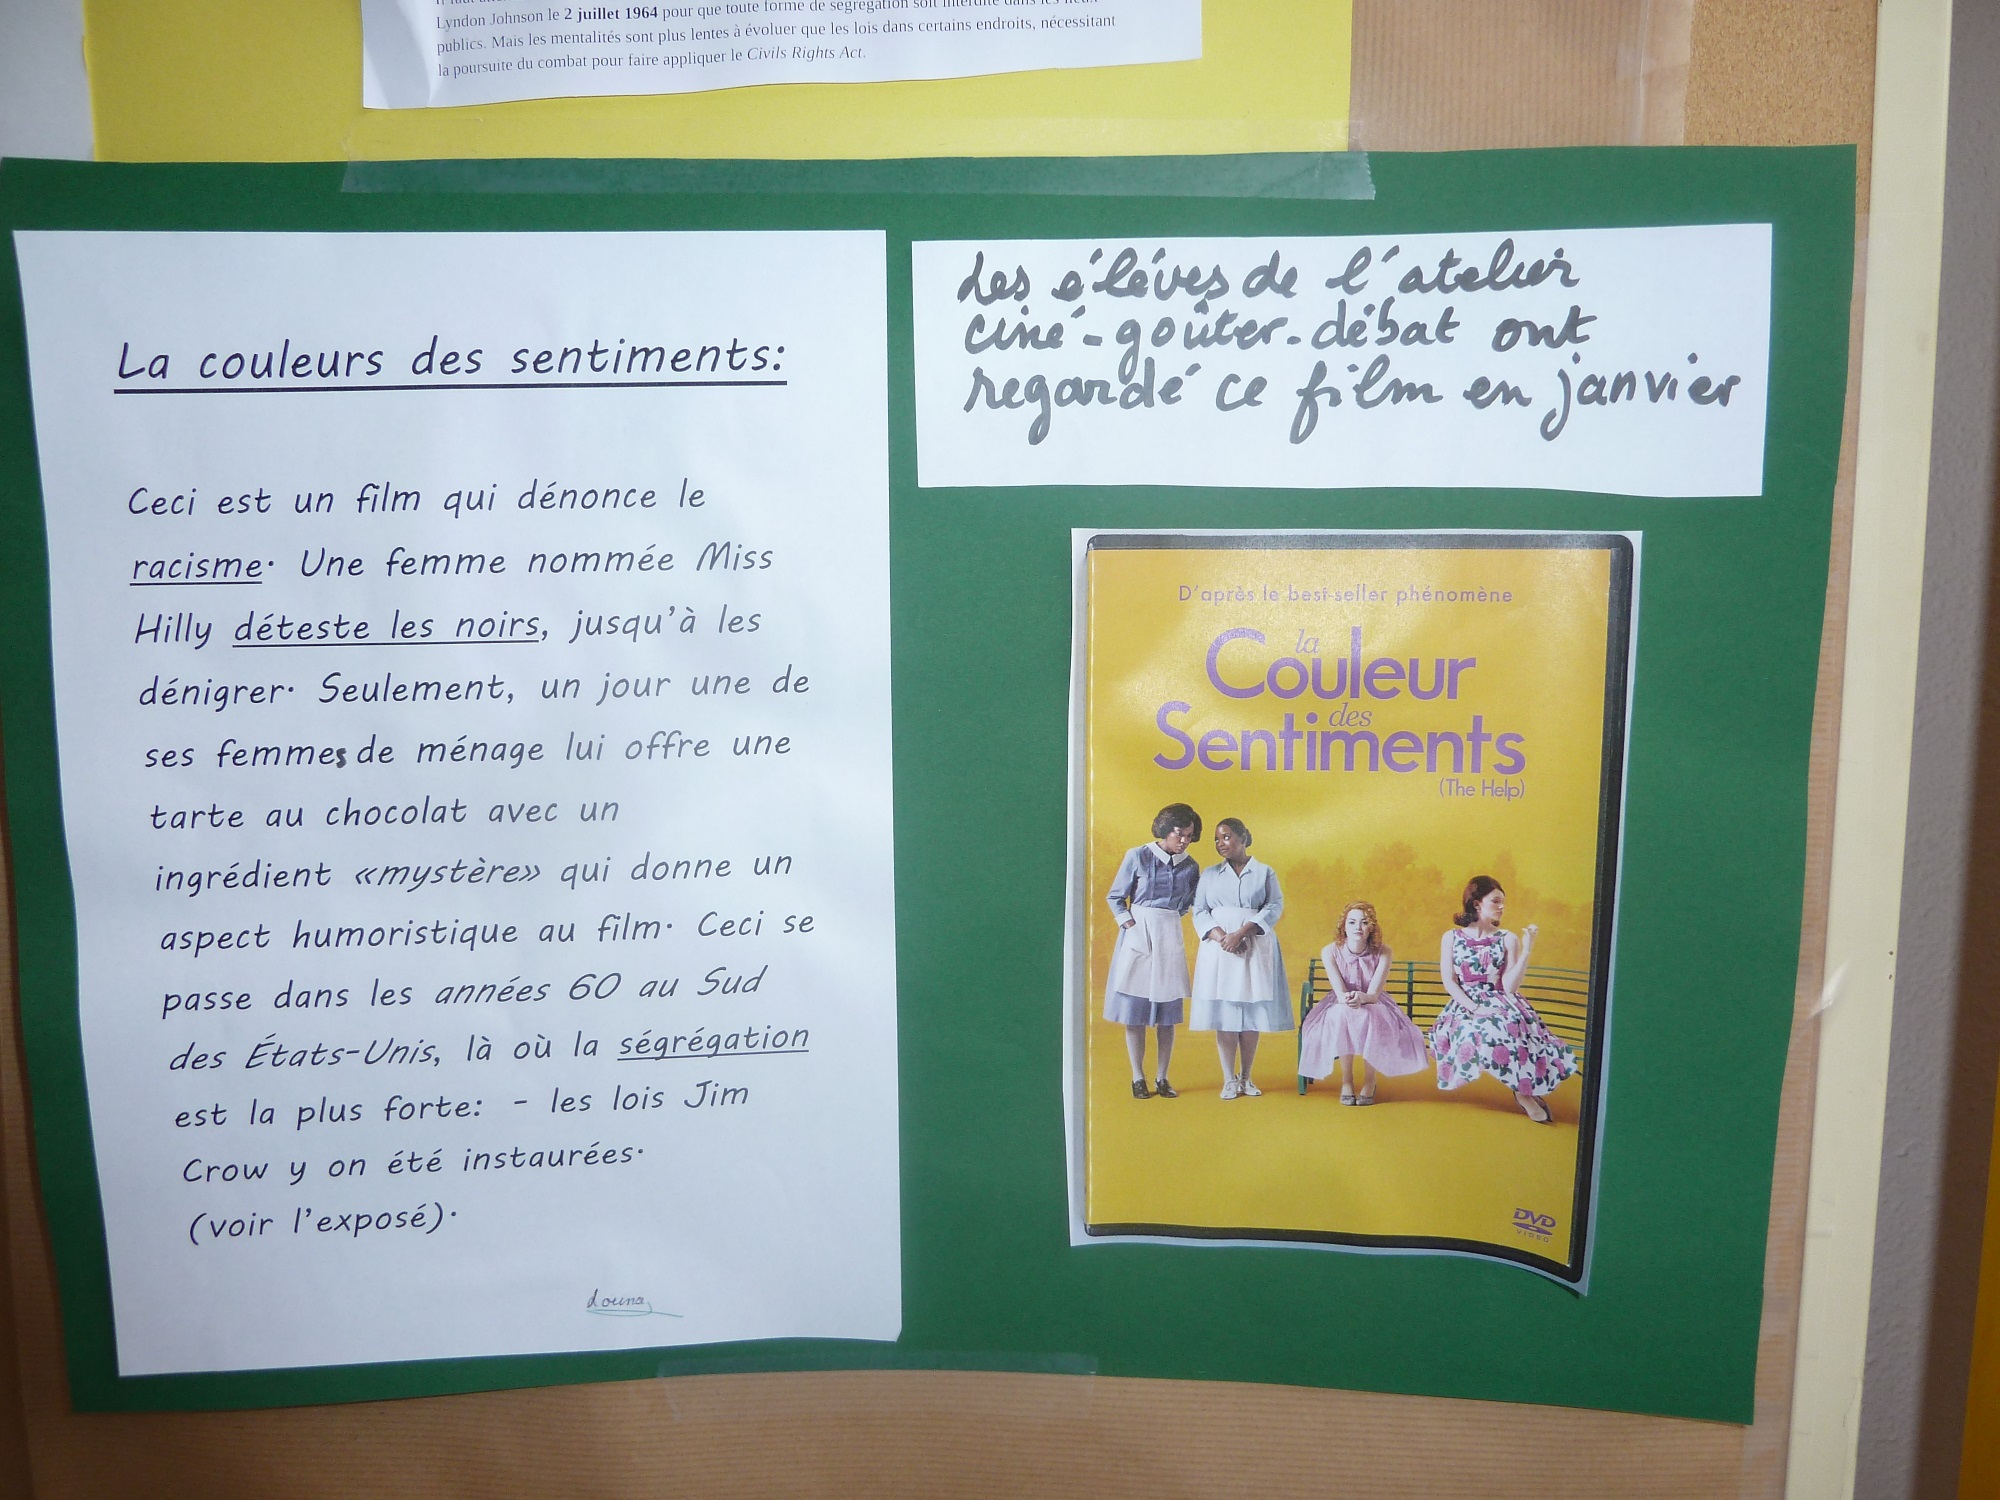 Lyndon Johnson le 2 juillet 1964 pour que toute forme de ségrégation soit interdite dans les lieux
publics. Mais les mentalités sont plus lentes à évoluer que les lois dans certains endroits, nécessitant
la poursuite du combat pour faire appliquer le Civils Rights Act.
La couleurs des sentiments:
Ceci est un film qui dénonce le
racisme. Une femme nommée Miss
Hilly déteste les noirs, jusqu'à les
dénigrer. Seulement, un jour une de
ses femmes de ménage lui offre une
tarte au chocolat avec un
ingrédient «mystère» qui donne un
aspect humoristique au film. Ceci se
passe dans les années 60 au Sud
des États-Unis, là où la ségrégation
est la plus forte: - les lois Jim
Crow y on été instaurées.
(voir l'exposé).
douna
Les éléves de l'atelier
ciné-goûter-débat ont
regardé ce film en janvier
D'après le best-seller phénomène
la
Couleur
des
Sentiments
(The Help)
DVD
VIDEO